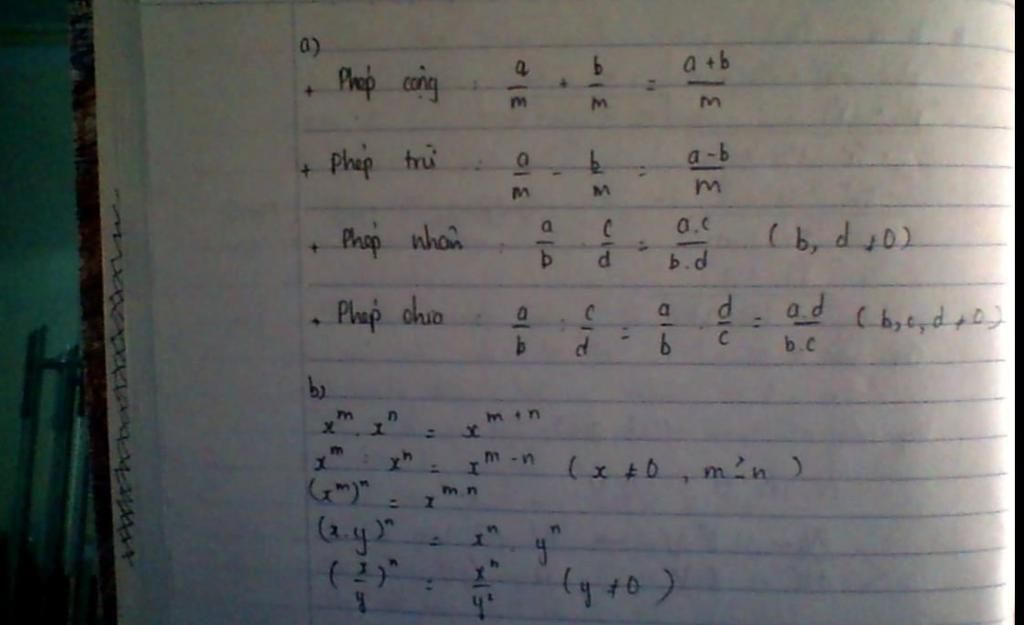 a)
+ Phép cộng : a/m + b/m = (a+b)/m
+ Phép trừ : a/m - b/m = (a-b)/m
+ Phép nhân : a/b . c/d = a.c/b.d (b, d ≠ 0)
+ Phép chia : a/b : c/d = a/b . d/c = a.d/b.c (b, c, d ≠ 0)
b)
x^m . x^n = x^(m+n)
x^m : x^n = x^(m-n) (x ≠ 0, m ≥ n)
(x^m)^n = x^(m.n)
(x.y)^n = x^n . y^n
(x/y)^n = x^n/y^2 (y ≠ 0)